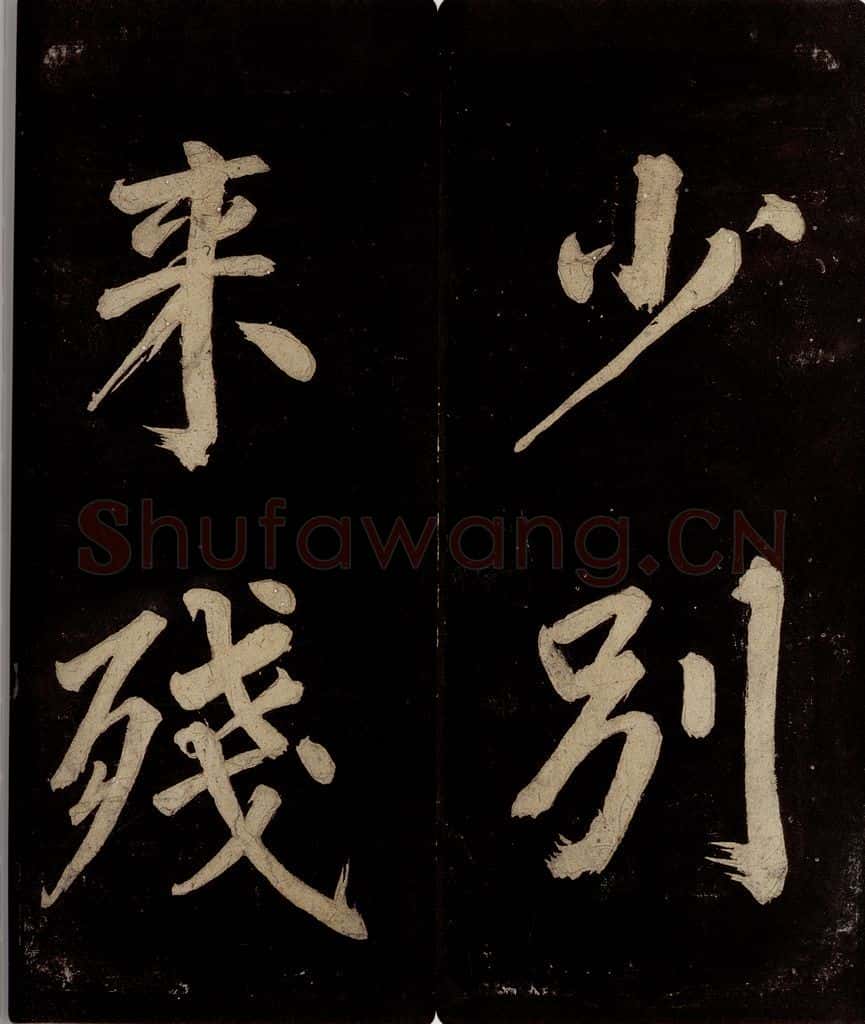 少别
来残
Shufawang.CN